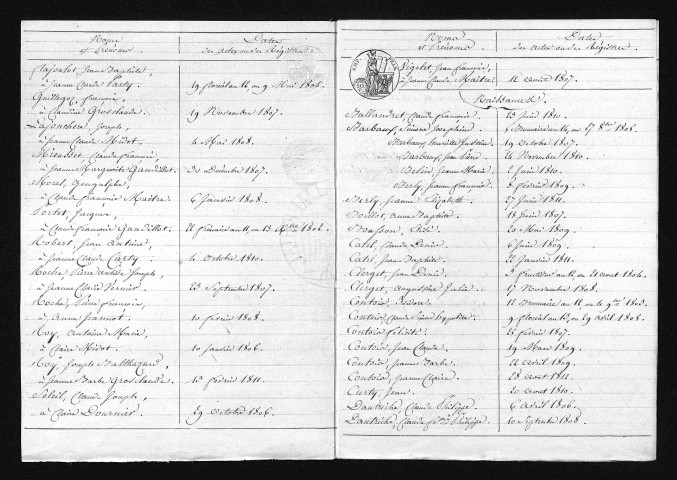 Noms et Prénoms
Dates des actes ou des Registres
Jean Baptiste,
à Jeanne Claude Party.
19 floréal an 12, ou 9 Mai 1804.
Guillegoz, françois,
à Claudine Groslaude.
19 Novembre 1807.
Joseph,
à Jeanne Claude Midot.
4 Mai 1808.
Claude francois,
à Jeanne Marguerite Gaudillot.
30 Décembre 1807.
Morel, Gengulphe,
à Claude francoise Maitre.
6 Janvier 1808.
Jacques,
à Claude francoise Gaudillot.
Robert, Jean Antoine,
à Jeanne Claude Carty.
4 Octobre 1810.
Roche Pierre Joseph,
à Jeanne Claire Vernier.
23 Septembre 1807.
Roche, Pierre francois,
à Anne Jeannot.
10 février 1808.
Roy, Antoine Marie,
à Claire Midot.
10 Janvier 1806.
Roy, Joseph Balthazard,
à Jeanne Barbe Groslaude.
13 février 1811.
Soleil, Claude Joseph,
à Claire Dournier.
29 Octobre 1806.
Noms et Prénoms
Dates des actes ou des Registres
Jean francois,
à Jeanne Claude Maitre.
12 aoust 1807.
Naissances.
Ballandret, Claude francoise.
13 Juin 1810.
Barbeuf, Simon Josephine.
Barbeuf, Henriette Justine.
19 Octobre 1807.
Barbeuf, Jean Pierre.
24 Novembre 1810.
Belin, Jeanne Marie.
2 Juin 1810.
Berly, Jeanne francoise.
8 février 1809.
Berly, Jeanne Elizabeth.
27 Juin 1811.
Boillot, Anne Baptiste.
18 Juin 1807.
20 Mai 1809.
Catel, Claude Denise.
6 Juin 1809.
Catel, Jean Baptiste.
22 Janvier 1811.
Clerget, Jean Denis.
3 fructidor an 12 ou 21 aout 1804.
Clerget, Augustine Julie.
17 Novembre 1808.
Contoir, Isidore.
Contoir, Claude Pierre hyppolite.
9 floréal an 12, ou 29 avril 1804.
Contoir felicité.
12 février 1807.
Contoir, Jean Claude.
19 Mars 1809.
Contoir, Jeanne Barbe.
22 avril 1809.
Contoir, Jeanne Claire.
28 aout 1811.
Curty, Jean.
20 aout 1810.
Dautriche, Claude Philippe.
6 Avril 1806.
Dautriche, Claude Philippe.
10 Septembre 1808.